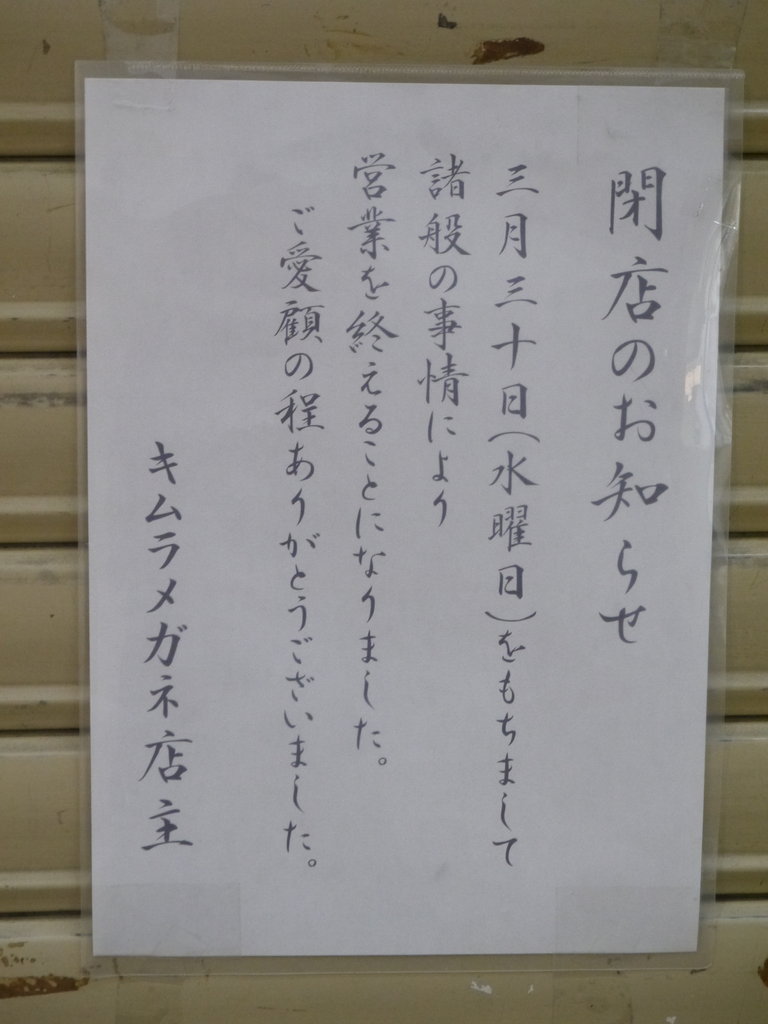 閉店のお知らせ
三月三十日(水曜日)をもちまして
諸般の事情により
営業を終えることになりました。
ご愛顧の程ありがとうございました。
キムラメガネ店主